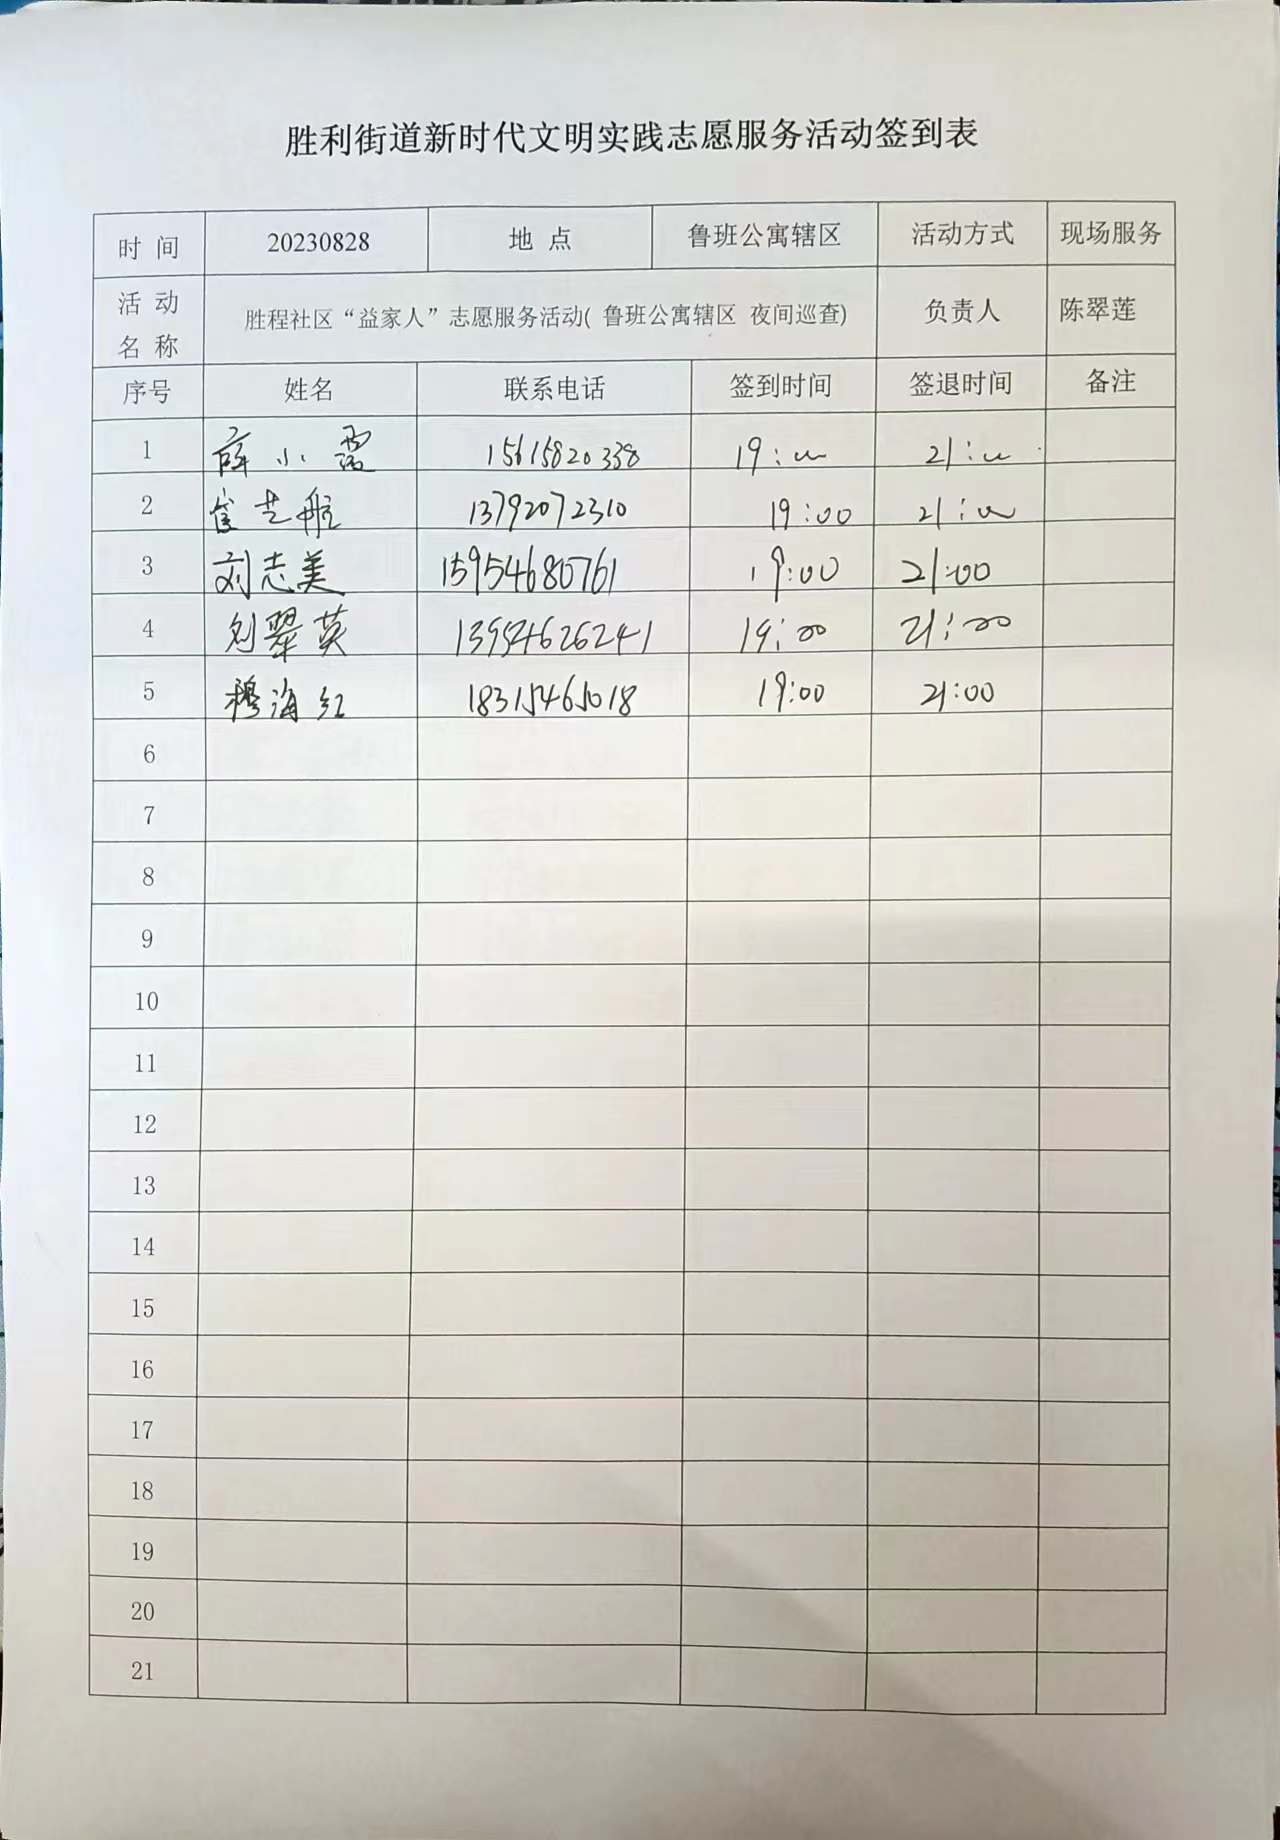 胜利街道新时代文明实践志愿服务活动签到表
时 间 20230828 地 点 鲁班公寓辖区 活动方式 现场服务
活 动 名 称 胜程社区“益家人”志愿服务活动( 鲁班公寓辖区 夜间巡查) 负责人 陈翠莲
序号 姓名 联系电话 签到时间 签退时间 备注
1 薛小霞 15615820338 19:00 21:00
2 崔芝航 13792072310 19:00 21:00
3 刘志美 15954680761 19:00 21:00
4 刘翠英 13954626241 19:00 21:00
5 穆海红 18315465018 19:00 21:00
6
7
8
9
10
11
12
13
14
15
16
17
18
19
20
21